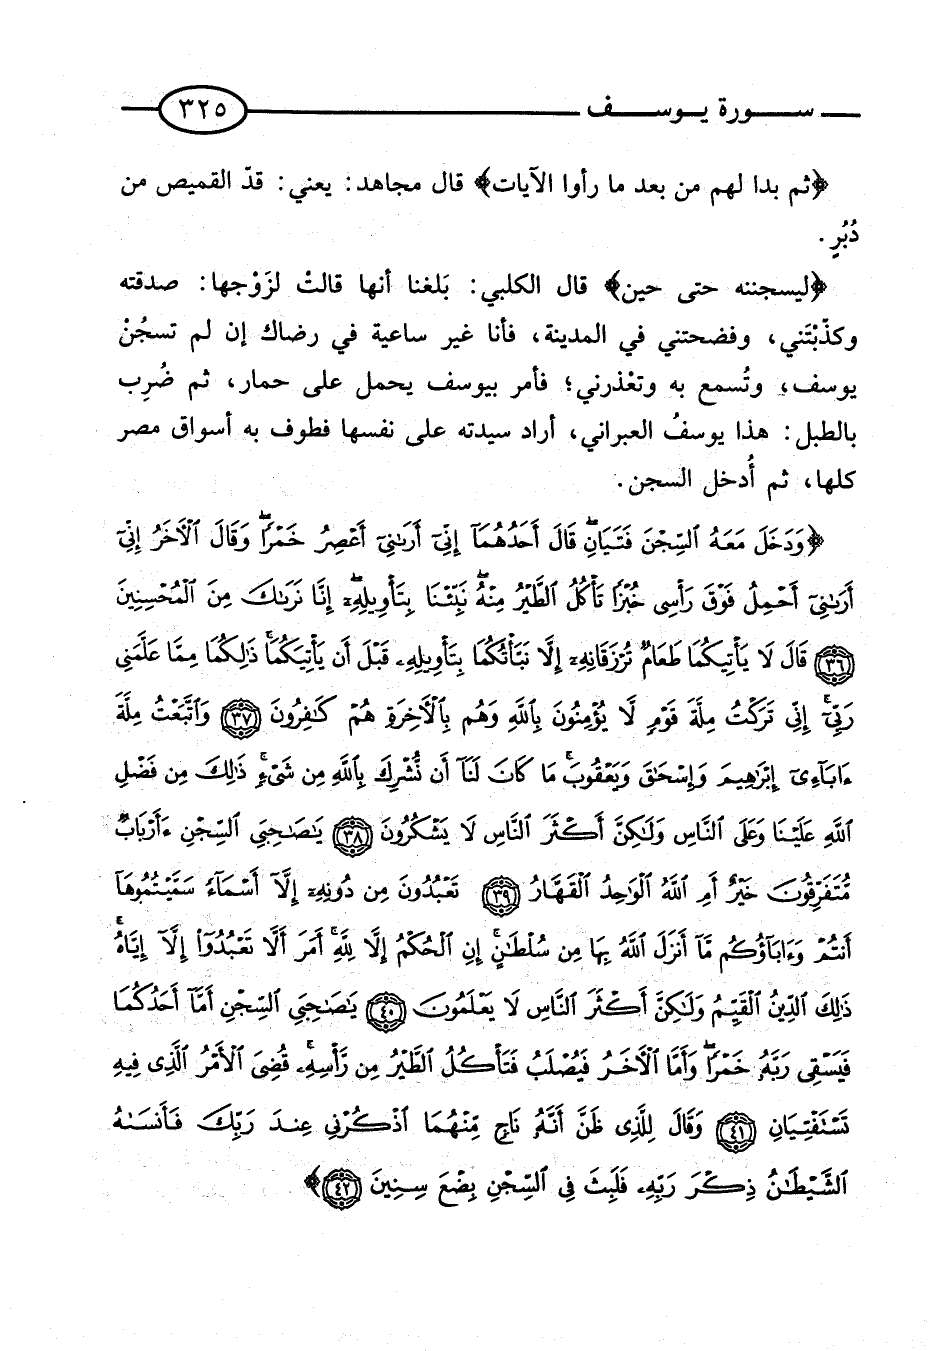 سورة يوسف ٣٢٥
﴿ثم بدا لهم من بعد ما رأوا الآيات﴾ قال مجاهد: يعني: قدّ القميص من
دُبُرٍ.
﴿ليسجننه حتى حين﴾ قال الكلبي: بَلغنا أنها قالتْ لزَوْجها: صدقته
وكذّبْتَني، وفضحتني في المدينة، فأنا غير ساعية في رضاك إن لم تسجُنْ
يوسف، وتُسمع به وتعْذرني؛ فأمر بيوسف يحمل على حمار، ثم ضُرِب
بالطبل: هذا يوسفُ العبراني، أراد سيدته على نفسها فطوف به أسواق مصر
كلها، ثم أُدخل السجن.
﴿وَدَخَلَ مَعَهُ ٱلسِّجْنَ فَتَيَانِۖ قَالَ أَحَدُهُمَآ إِنِّىٓ أَرَىٰنِىٓ أَعْصِرُ خَمْرًاۖ وَقَالَ ٱلْآخَرُ إِنِّىٓ
أَرَىٰنِىٓ أَحْمِلُ فَوْقَ رَأْسِى خُبْزًا تَأْكُلُ ٱلطَّيْرُ مِنْهُۖ نَبِّئْنَا بِتَأْوِيلِهِۦٓۖ إِنَّا نَرَىٰكَ مِنَ ٱلْمُحْسِنِينَ
﴿٣٦﴾ قَالَ لَا يَأْتِيكُمَا طَعَامٌ تُرْزَقَانِهِۦٓ إِلَّا نَبَّأْتُكُمَا بِتَأْوِيلِهِۦ قَبْلَ أَن يَأْتِيَكُمَاۚ ذَٰلِكُمَا مِمَّا عَلَّمَنِى
رَبِّىٓۚ إِنِّى تَرَكْتُ مِلَّةَ قَوْمٍ لَّا يُؤْمِنُونَ بِٱللَّهِ وَهُم بِٱلْآخِرَةِ هُمْ كَٰفِرُونَ ﴿٣٧﴾ وَٱتَّبَعْتُ مِلَّةَ
ءَابَآءِىٓ إِبْرَٰهِيمَ وَإِسْحَٰقَ وَيَعْقُوبَۚ مَا كَانَ لَنَآ أَن نُّشْرِكَ بِٱللَّهِ مِن شَىْءٍۚ ذَٰلِكَ مِن فَضْلِ
ٱللَّهِ عَلَيْنَا وَعَلَى ٱلنَّاسِ وَلَٰكِنَّ أَكْثَرَ ٱلنَّاسِ لَا يَشْكُرُونَ ﴿٣٨﴾ يَٰصَٰحِبَىِ ٱلسِّجْنِ ءَأَرْبَابٌ
مُّتَفَرِّقُونَ خَيْرٌ أَمِ ٱللَّهُ ٱلْوَٰحِدُ ٱلْقَهَّارُ ﴿٣٩﴾ تَعْبُدُونَ مِن دُونِهِۦٓ إِلَّآ أَسْمَآءً سَمَّيْتُمُوهَآ
أَنتُمْ وَءَابَآؤُكُم مَّآ أَنزَلَ ٱللَّهُ بِهَا مِن سُلْطَٰنٍۚ إِنِ ٱلْحُكْمُ إِلَّا لِلَّهِۚ أَمَرَ أَلَّا تَعْبُدُوٓا۟ إِلَّآ إِيَّاهُۚ
ذَٰلِكَ ٱلدِّينُ ٱلْقَيِّمُ وَلَٰكِنَّ أَكْثَرَ ٱلنَّاسِ لَا يَعْلَمُونَ ﴿٤٠﴾ يَٰصَٰحِبَىِ ٱلسِّجْنِ أَمَّآ أَحَدُكُمَا
فَيَسْقِى رَبَّهُۥ خَمْرًاۖ وَأَمَّا ٱلْآخَرُ فَيُصْلَبُ فَتَأْكُلُ ٱلطَّيْرُ مِن رَّأْسِهِۦۚ قُضِىَ ٱلْأَمْرُ ٱلَّذِى فِيهِ
تَسْتَفْتِيَانِ ﴿٤١﴾ وَقَالَ لِلَّذِى ظَنَّ أَنَّهُۥ نَاجٍ مِّنْهُمَا ٱذْكُرْنِى عِندَ رَبِّكَ فَأَنسَىٰهُ
ٱلشَّيْطَٰنُ ذِكْرَ رَبِّهِۦ فَلَبِثَ فِى ٱلسِّجْنِ بِضْعَ سِنِينَ ﴿٤٢﴾﴾